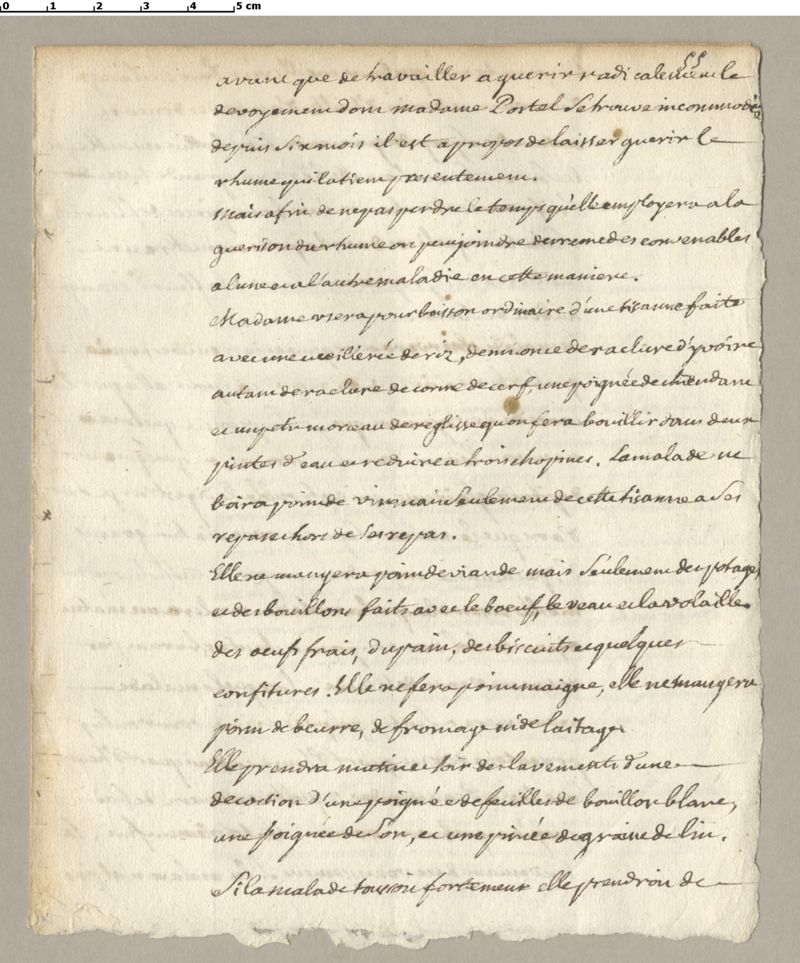 0 1 2 3 4 5 cm
55
avant que de travailler a querir radicalement le
devoyement dont madame Portal se trouve incommodée
depuis six mois il est a propos de laisser guerir le
rhume qui la tient presentement.
Mais afin de ne pas perdre le temps qu'elle employera a la
guerison du rhume on peut joindre des remedes convenables
a l'une et a l'autre maladie en cette maniere.
Madame usera pour boisson ordinaire d'une tisanne faite
avec une cueillierée de riz, demi once de raclure d'yvoire
autant de raclure de corne de cerf, une poignée de chiendant
et un petit morceau de reglisse qu'on fera bouillir dans deux
pintes d'eau et reduire a trois chopines. La malade ne
boira point de vin, mais seulement de cette tisanne a ses
repas et hors de ses repas.
Elle ne mangera point de viande mais seulement des potages
et des bouillons faits avec le boeuf, le veau et la volaille.
des oeufs frais, du pain, des biscuits et quelques
confitures. Elle ne fera point maigre, elle ne mangera
point de beurre, de fromage ni de laitage.
Elle prendra matin et soir des lavements d'une
decoction d'une poignée de feuilles de bouillon blanc,
une poignée de son, et une pincée de graine de lin.
Si la malade toussoit fortement elle prendroit de